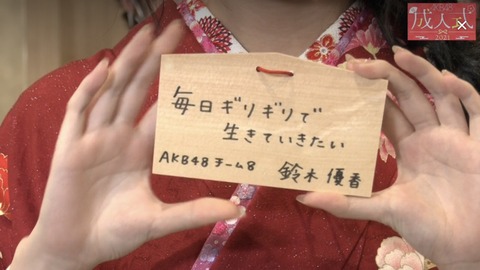 毎日ギリギリで
生きていきたい
AKB48 チーム8 鈴木 優香
成人式
2021